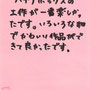 工作が一番楽しかっ
たです。いろいろな物
でかわいい作品が
できて良かったです。